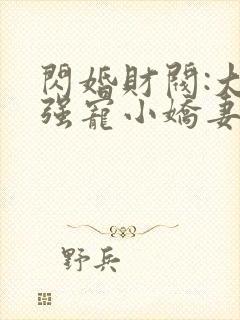 閃婚財閥:大
强寵小嬌妻
野兵